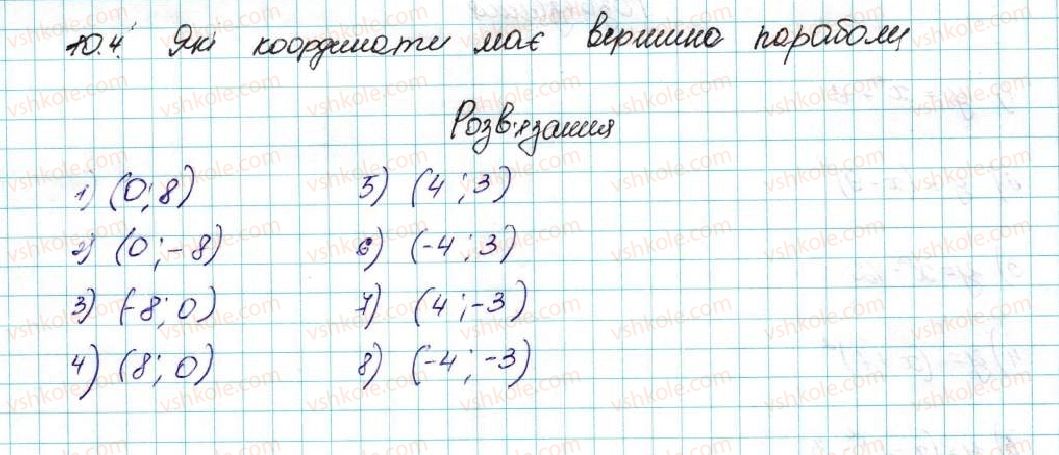 10.4. Які координати має вершина параболи
Розв'язання
1) (0; 8)
2) (0; -8)
3) (-8; 0)
4) (8; 0)
5) (4; 3)
6) (-4; 3)
7) (4; -3)
8) (-4; -3)